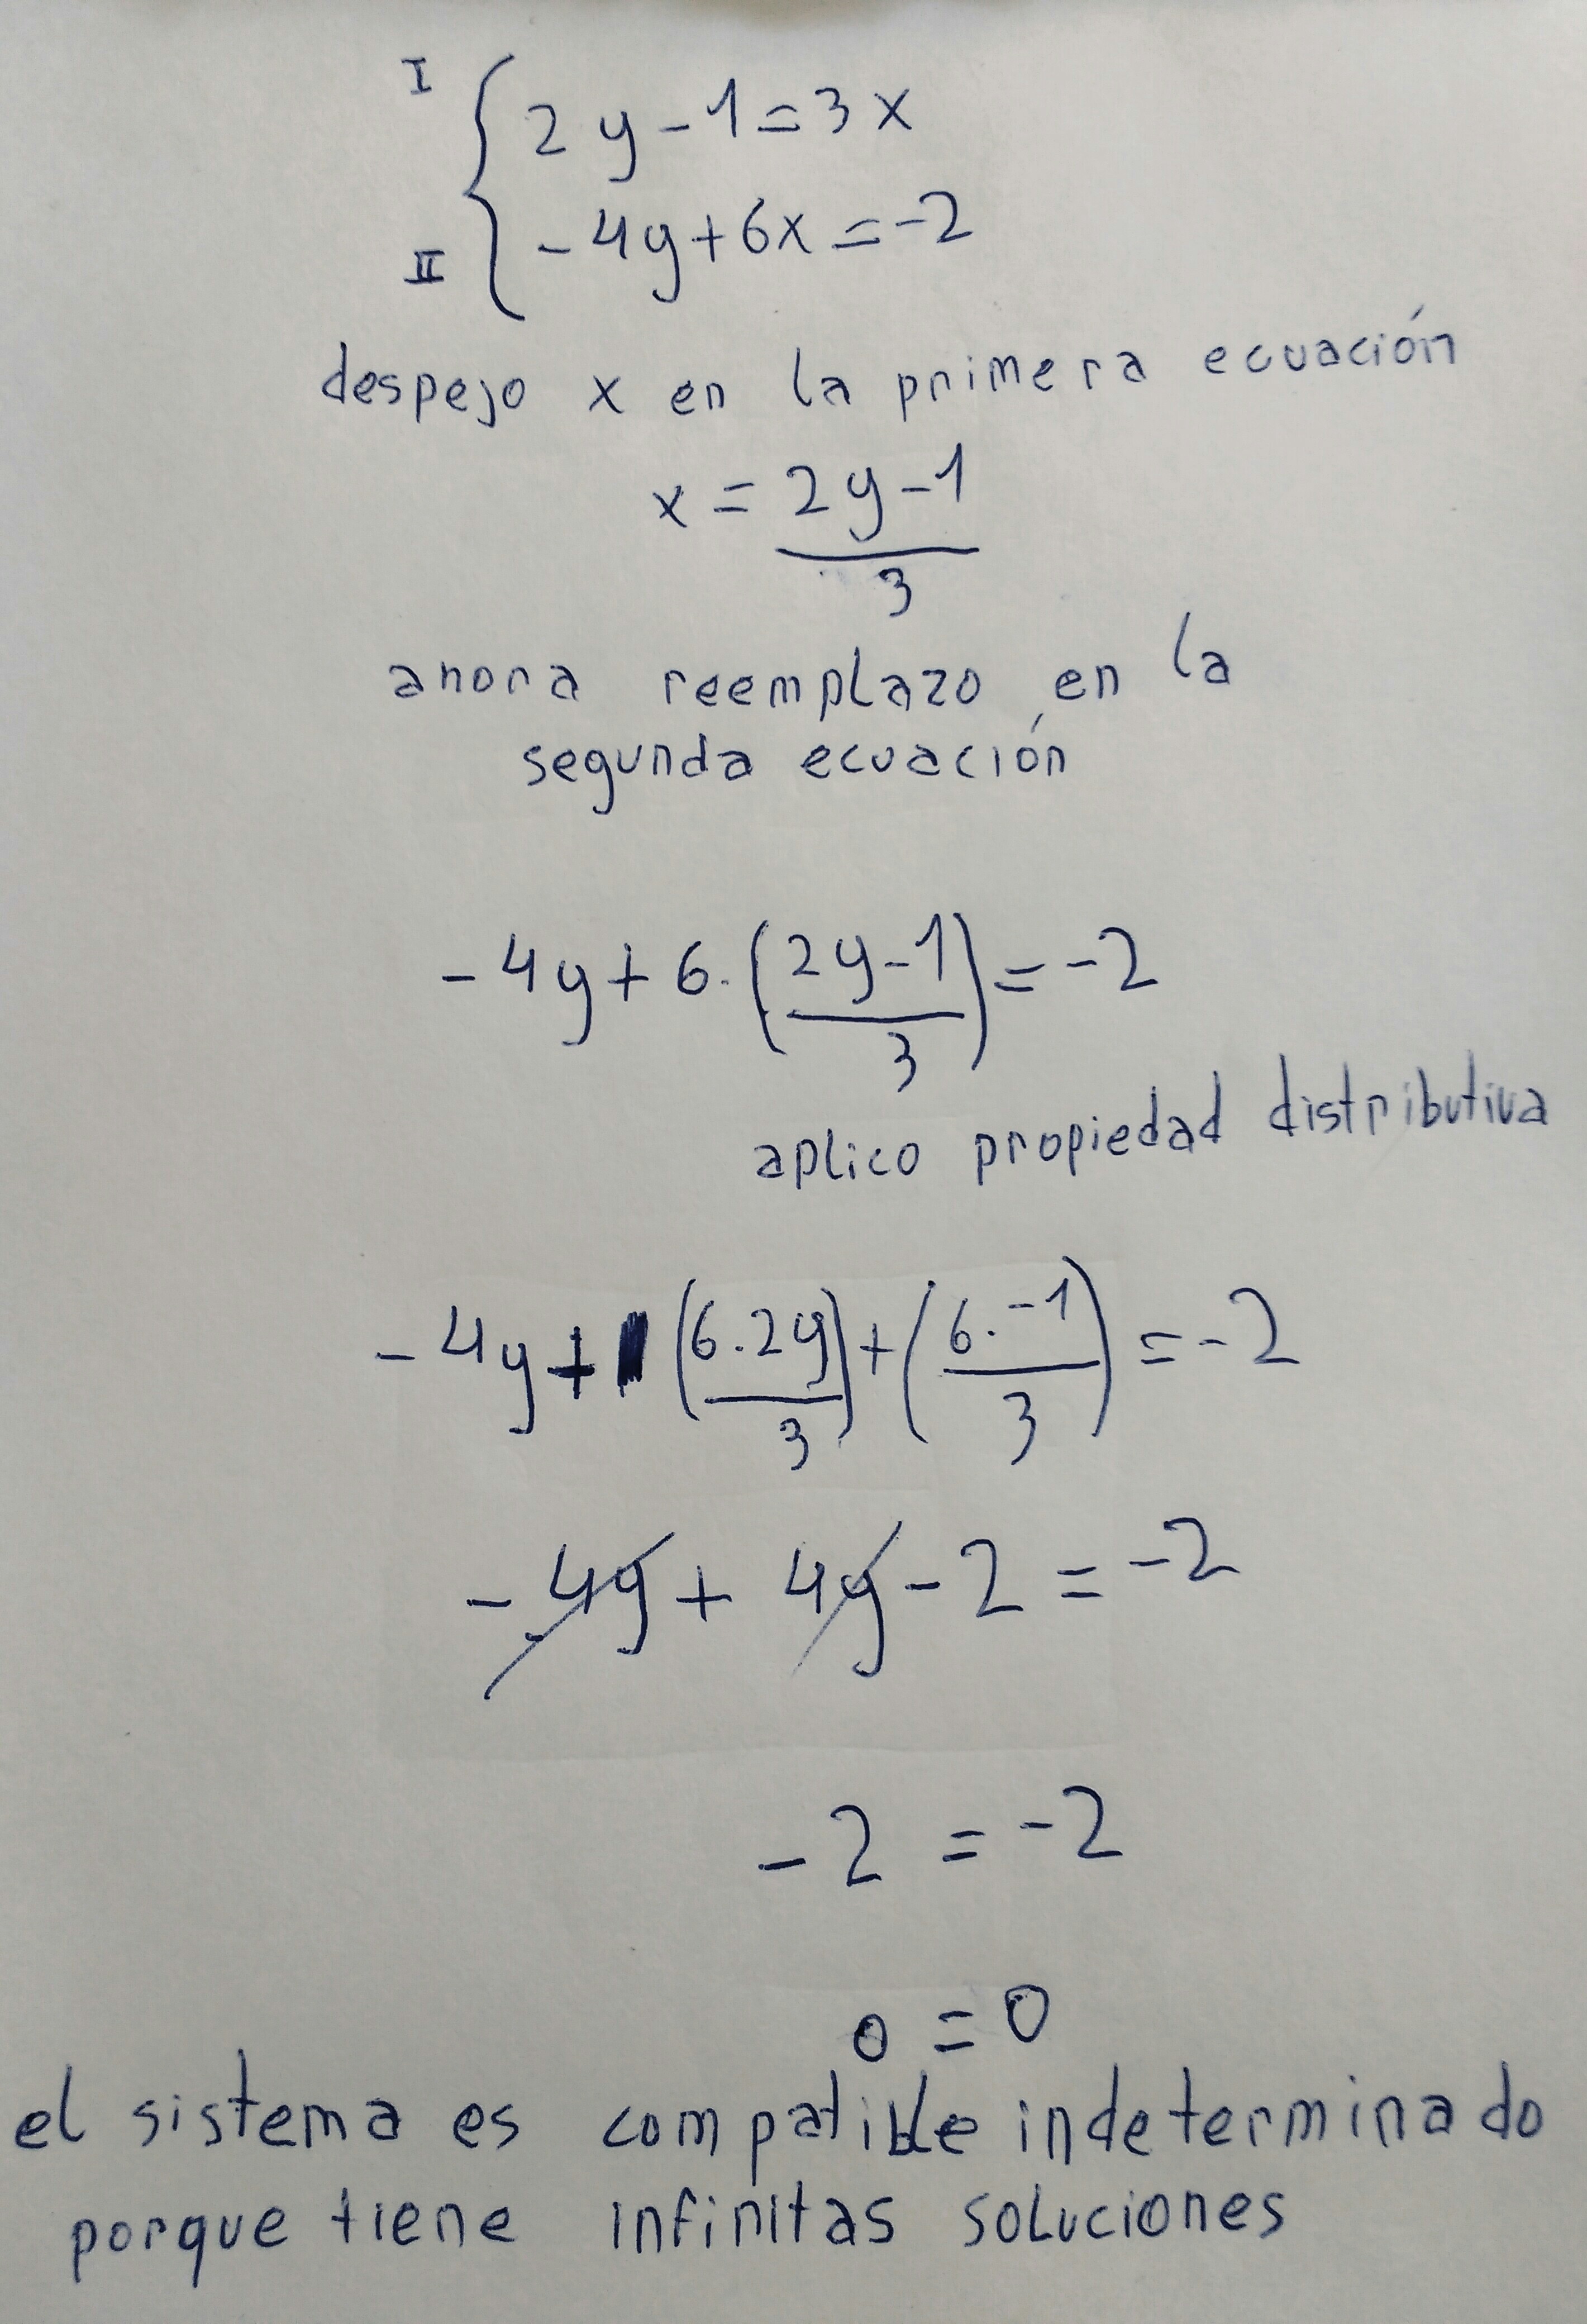 I { 2y-1=3x
II { -4y+6x=-2
despejo x en la primera ecuación
x = 2y-1
3
ahora reemplazo en la
segunda ecuación
-4y+6.(2y-1)=-2
3
aplico propiedad distributiva
-4y+(6.2y)+(6.-1)=-2
3 3
-4y+4y-2=-2
-2=-2
0=0
el sistema es compatible indeterminado
porque tiene infinitas soluciones